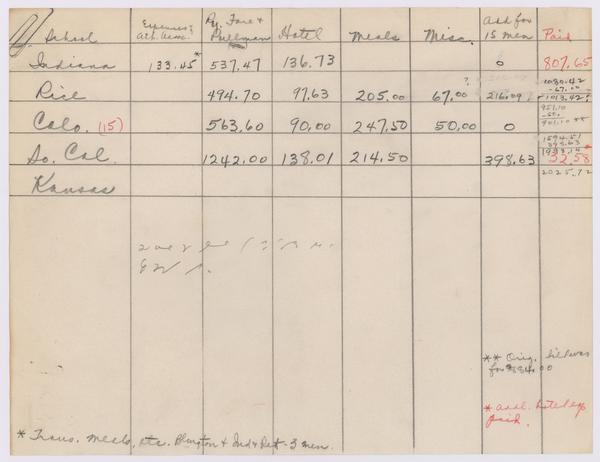 School Expenses & Ath. Assoc. Ry. Fare & Pullman Hotel Meals Misc. Add for 15 men Paid
Indiana 133.45* 537.47 136.73 0 807.65
Rice 494.70 97.63 205.00 ? 67.00 216.09 1080.42 -67.00 1013.42?
Colo. (15) 563.60 90.00 247.50 50.00 0 951.10 -50. 901.10 **
So. Cal. 1242.00 138.01 214.50 398.63 1594.51 398.63 1993.14 32.58 * 2025.72
Kansas
** Orig.
for $884.00
* addl. hotel exp
paid.
* Trans. meals, etc. Blmgton & Ind & Ret - 3 men.